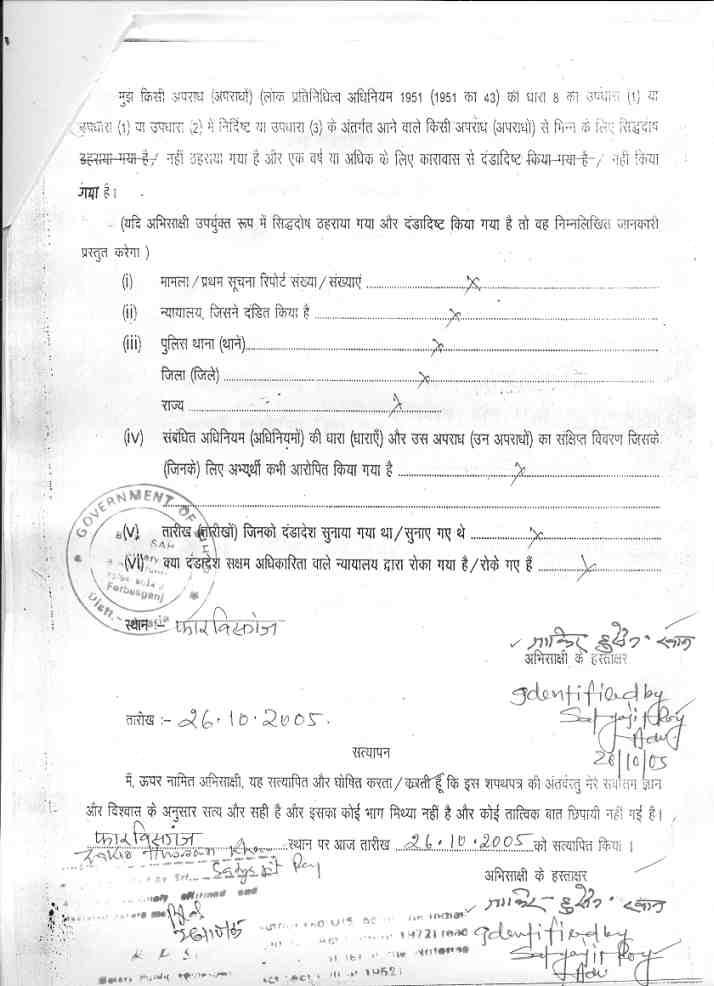 मुझ किसी अपराध (अपराधों) (लोक प्रतिनिधित्व अधिनियम 1951 (1951 का 43) की धारा 8 की उपधारा (1) या
उपधारा (1) या उपधारा (2) में निर्दिष्ट या उपधारा (3) के अंतर्गत आने वाले किसी अपराध (अपराधों) से भिन्न के लिए सिद्धदोष
ठहराया गया है / नहीं ठहराया गया है और एक वर्ष या अधिक के लिए कारावास से दंडादिष्ट किया गया है / नहीं किया
गया है।
(यदि अभिसाक्षी उपर्युक्त रूप में सिद्धदोष ठहराया गया और दंडादिष्ट किया गया है तो वह निम्नलिखित जानकारी
प्रस्तुत करेगा )
(i) मामला / प्रथम सूचना रिपोर्ट संख्या / संख्याएं ........ x
(ii) न्यायालय, जिसने दंडित किया है ........ x
(iii) पुलिस थाना (थाने)........ x
जिला (जिले) ........ x
राज्य ........ x
(iv) संबंधित अधिनियम (अधिनियमों) की धारा (धाराएँ) और उस अपराध (उन अपराधों) का संक्षिप्त विवरण जिसके
(जिनके) लिए अभ्यर्थी कभी आरोपित किया गया है ........ x
GOVERNMENT OF
(V) तारीख (तारीखों) जिनको दंडादेश सुनाया गया था / सुनाए गए थे ........ x
SAH
(VI) क्या दंडादेश सक्षम अधिकारिता वाले न्यायालय द्वारा रोका गया है / रोके गए हैं ........ x
Forbesganj
Distt.-
स्थान :- फारबिसगंज
अभिसाक्षी के हस्ताक्षर
Identified by
Satyajit Roy
Adv.
26/10/05
तारीख :- 26.10.2005.
सत्यापन
मैं, ऊपर नामित अभिसाक्षी, यह सत्यापित और घोषित करता / करती हूँ कि इस शपथपत्र की अंतर्वस्तु मेरे सर्वोत्तम ज्ञान
और विश्वास के अनुसार सत्य और सही है और इसका कोई भाग मिथ्या नहीं है और कोई तात्विक बात छिपायी नहीं गई है।
फारबिसगंज ........ स्थान पर आज तारीख 26.10.2005 को सत्यापित किया ।
Satyajit Roy
अभिसाक्षी के हस्ताक्षर
Identified by
Satyajit Roy
Adv